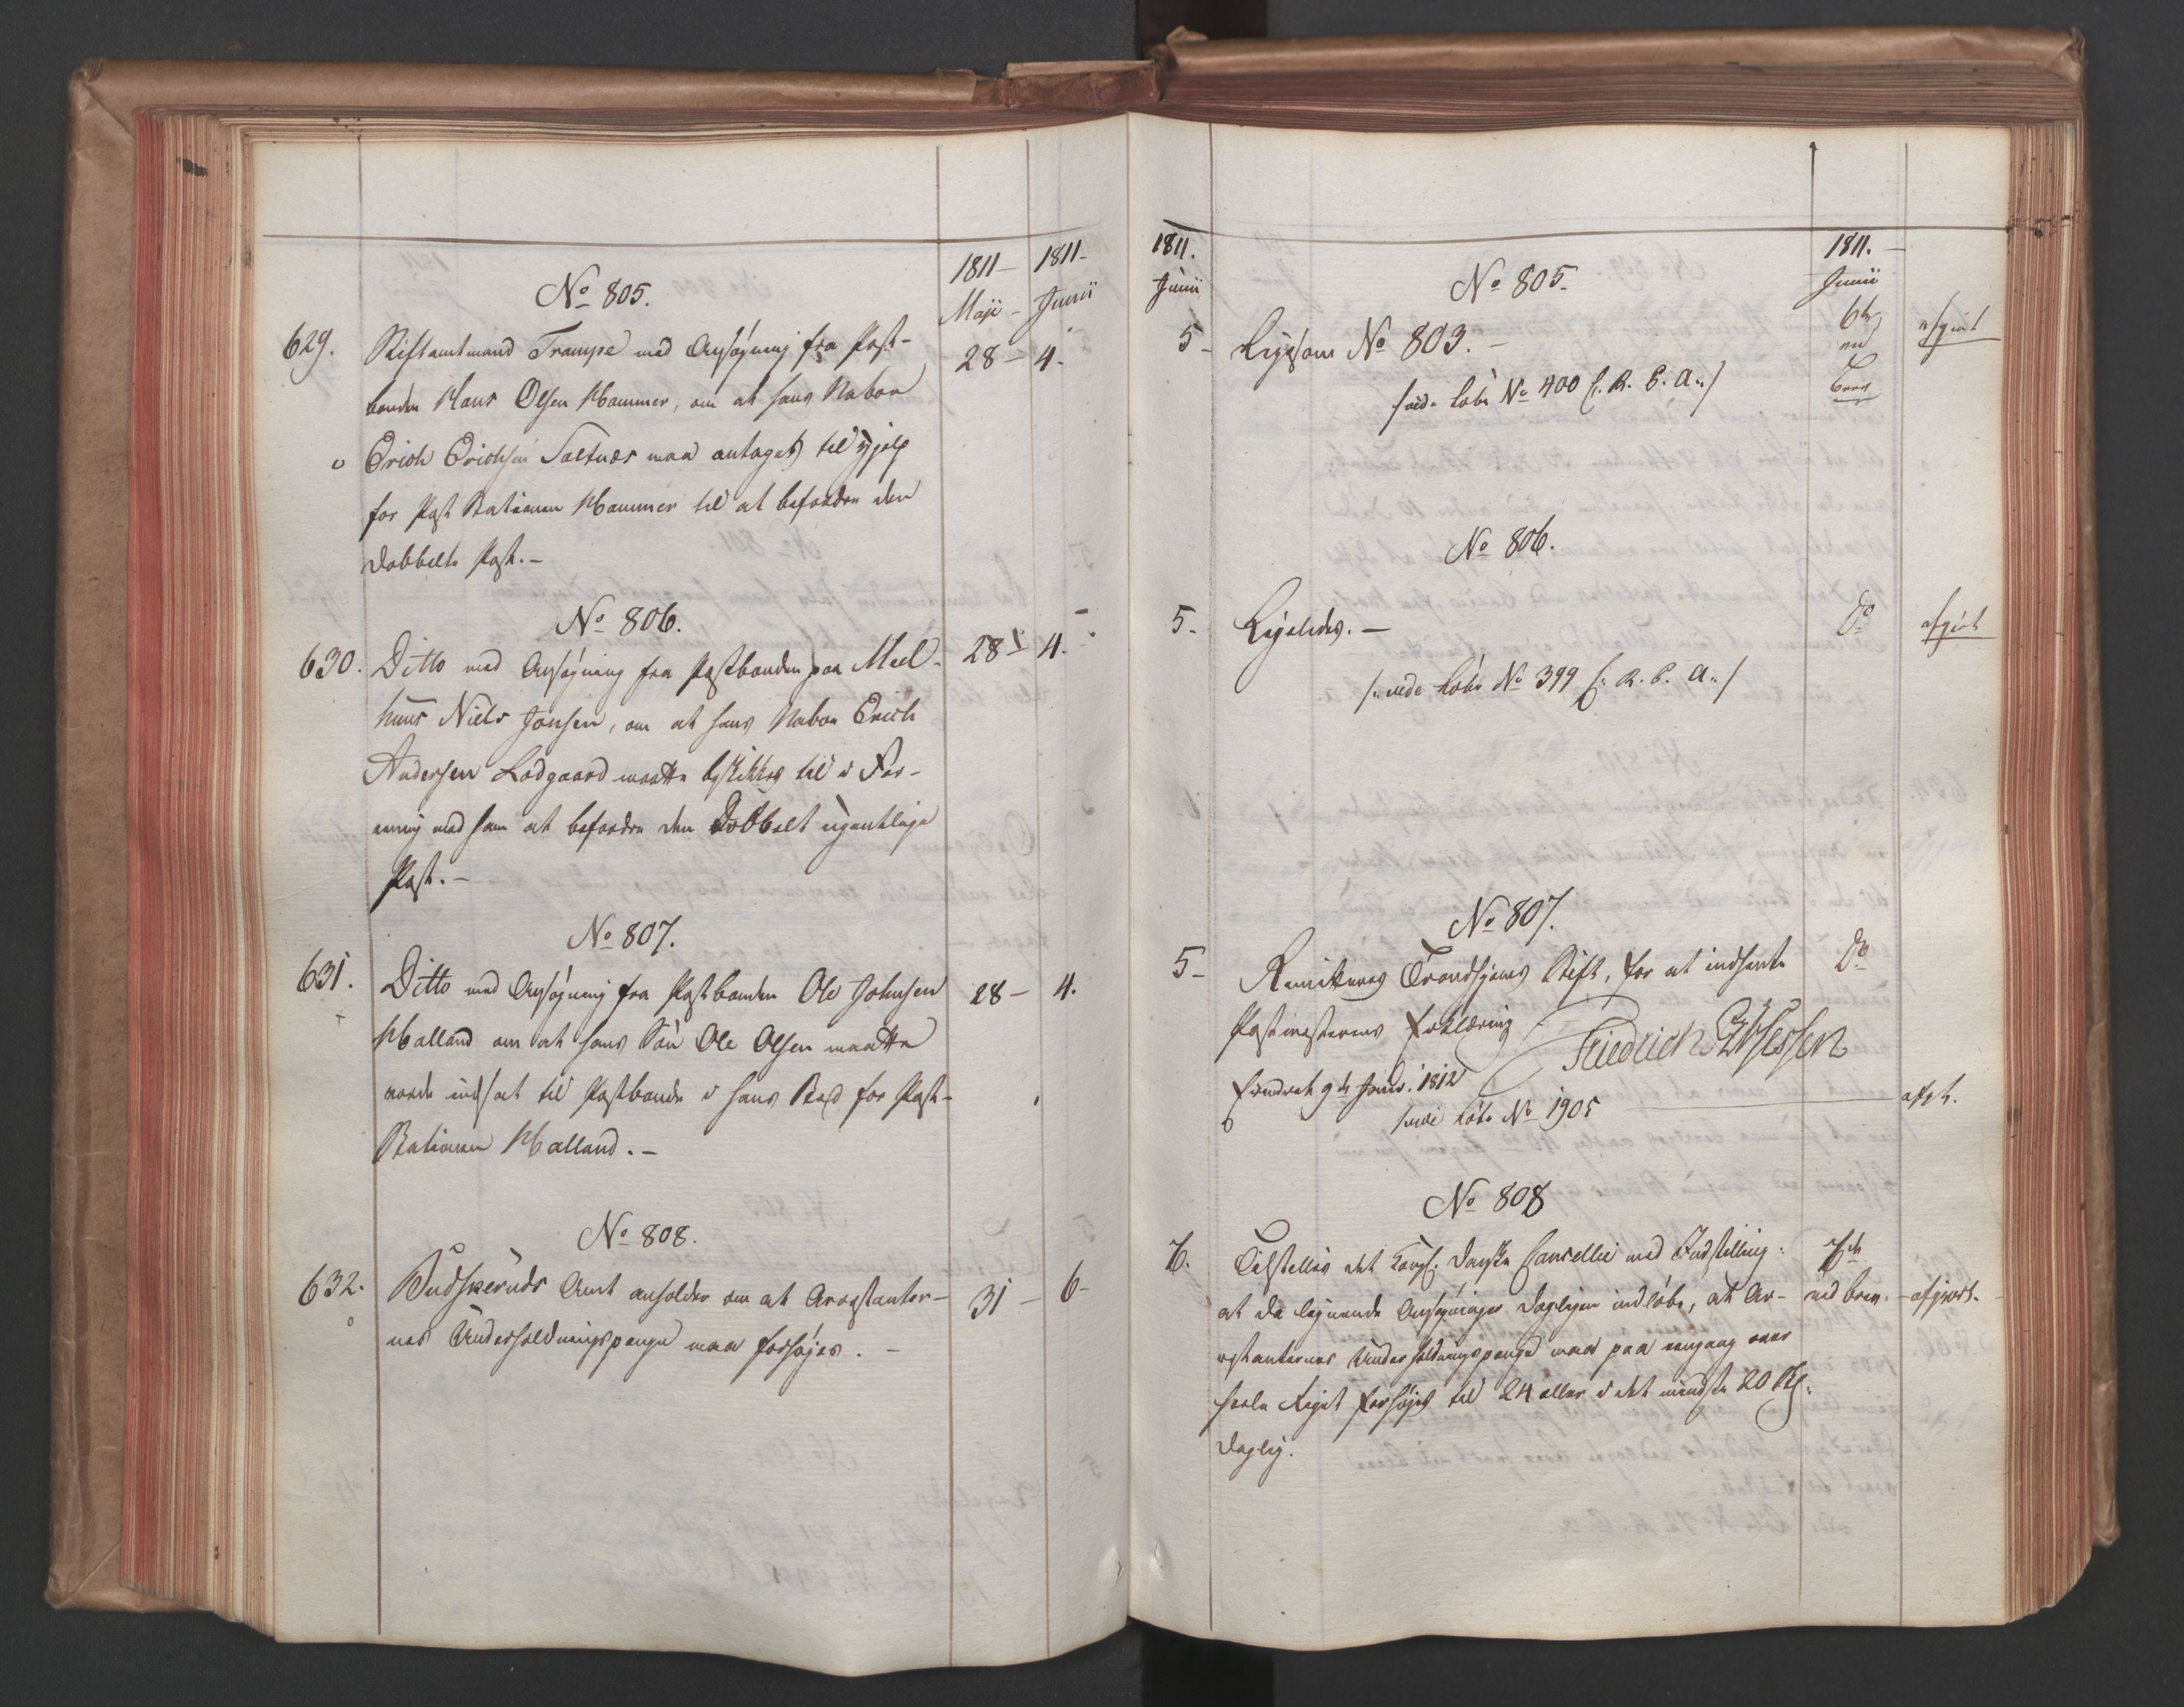 1811 – 1811 –
Maji – Junii
No 805.
629. Stiftamtmand Trampe med Ansøgning fra Post- 28 – 4.
bonden Hans Olsen Hammer, om at hans Naboe
Erich Erichsen Saltnæs maa antages til Hjælp
for Post Stationen Hammer til at befordre den
dobbelte Post. –
No 806.
630. Ditto med Ansøgning fra Postbonden paa Meel- 28 – 4.
huus Niels Jonsen, om at hans Naboe Erich
Andersen Lodgaard maatte beskikkes til i For-
ening med ham at befordre den Dobbelt ugentlige
Post. –
No 807.
631. Ditto med Ansøgning fra Postbonden Ole Johnsen 28 – 4.
Halland om at hans Søn Ole Olsen maatte
vorde indsat til Postbonde i hans Sted for Post-
Stationen Halland. –
No 808.
632. Budskeruds Amt anholder om at Arrestanter- 31 – 6 –
nes Underholdningspenge maa forhøjes. –
1811. 1811. –
Junii Junii
No 805.
5 – Ligesom No 803. – 6te afgiort
ved
Brev
/vide Løbe No 400 C. R. P. A./
No 806.
5. Ligeledes. – Do afgiort
/: vide Løbe No 399 C. R. P. A:/
No 807.
5 – Remitteres Trondhjems Stift, for at indhente Do
Postmesterens Erklæring
Friedrich Ebbesen
Erindret 9de Janr. 1812
/vide Løbe No 1905 afgt.
No 808
6. Tilstilles det Kongl. Danske Cancellie med Indstilling: 7de
at da lignende Ansøgninger dagligen indløbe, at Ar- ved brev. – afgiort. –
restanternes Underholdningspenge maa paa eengang over
heele Riget forhøjes til 24 eller i det mindste 20 Sk:
daglig.